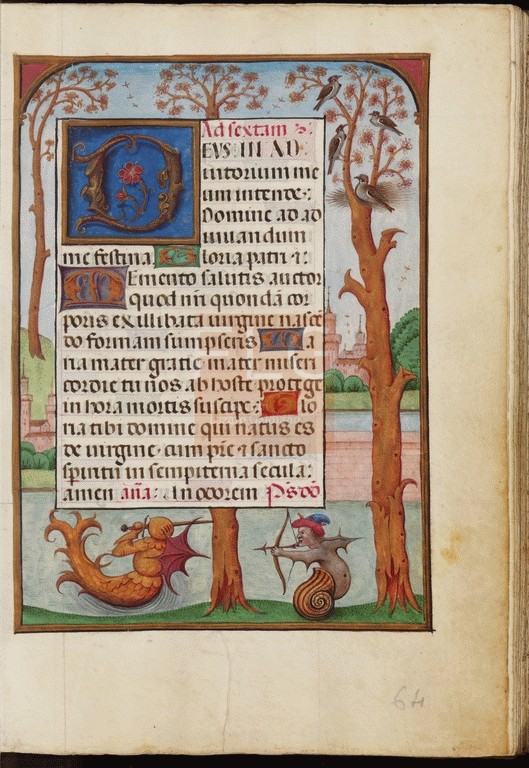 Ad sextam
DEVS IN AD
iutorium me
um intende:
Domine ad ad
iuuandum
me festina. Gloria patri ⁊:
Memento salutis auctor
quod nr̄i quondā cor
poris ex illibata uirgine nascē
do formam sumpseris Ma
ria mater gratie mater miseri
cordie tu nos ab hoste protege
in hora mortis suscipe: Glo
ria tibi domine qui natus es
de uirgine cum pr̄e ⁊ sancto
spiritu in sempiterna secula:
amen añā: In odorem Ps̄ dd̄
64